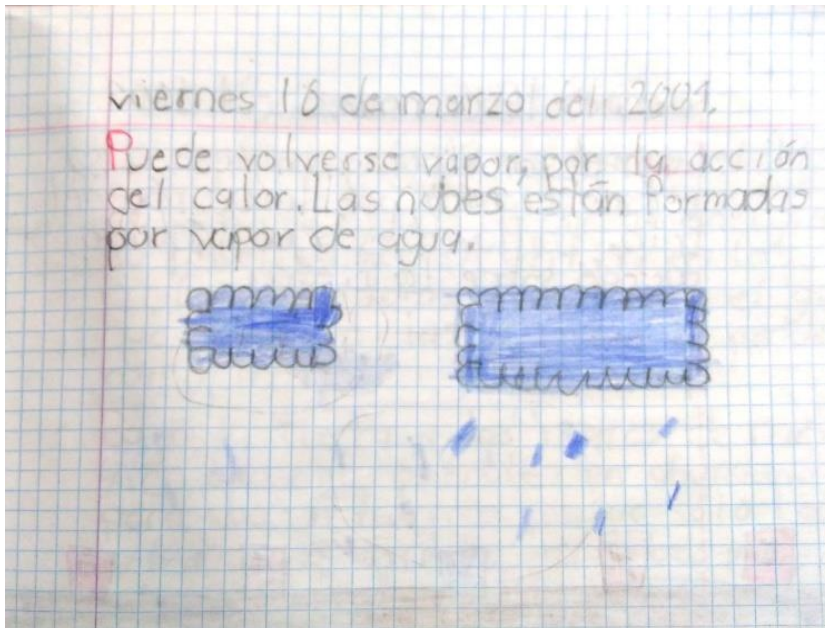 viernes 18 de marzo del 2009.
Puede volverse vapor, por la acción
del calor. Las nubes están formadas
por vapor de agua.